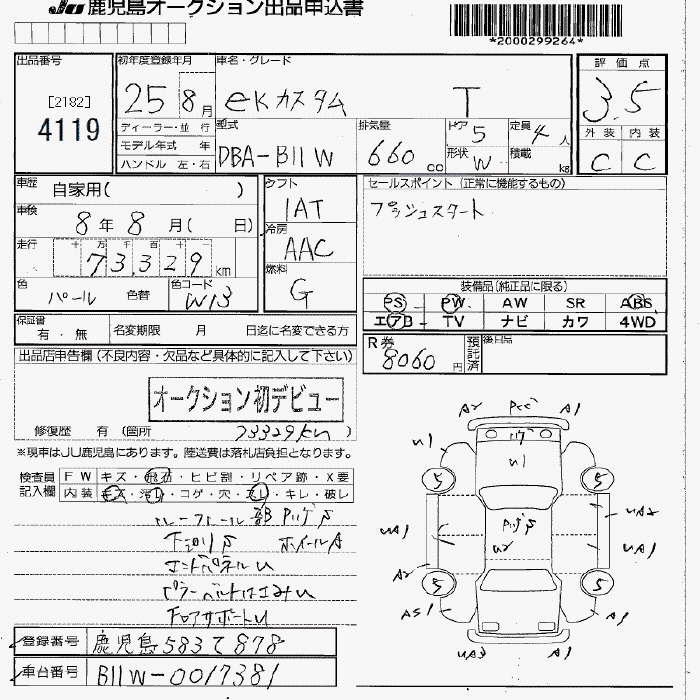 JU 鹿児島オークション出品申込書
*2000299264*
出品番号
[2182]
4119
初年度登録年月
25 8月
車名・グレード
eKカスタム T
評価点
3.5
外装 内装
C C
ディーラー・並行
モデル年式 年
ハンドル 左・右
型式
DBA-B11W
排気量
660 cc
ドア 5
形状 W
定員 4人
積載 kg
車歴 自家用( )
車検
8年 8月( 日)
走行
十万千百十一
73,329 km
色 パール 色替
色コード W13
シフト
IAT
冷房
AAC
燃料
G
セールスポイント(正常に機能するもの)
プッシュスタート
装備品(純正品に限る)
PS PW AW SR ABS
エアB TV ナビ カワ 4WD
保証書
有・無
名変期限 月 日迄に名変できる方
R券
8060円
預託済
後日品
出品店申告欄(不良内容・欠品など具体的に記入して下さい)
オークション初デビュー
修復歴 有(箇所 73329km)
※現車はJU鹿児島にあります。陸送費は落札店負担となります。
検査員記入欄
FW キズ・飛石・ヒビ割・リペア跡・X要
内装 キズ・汚れ・コゲ・穴・スレ・キレ・破レ
ホイールA
エンドパネルU
ピラー
フロアサポートU
A2 A1
U1
U1
5 5
UA1 UA2
U2 UA1
A2
5 5
AS1 A1
UA3 A1
登録番号 鹿児島583て878
車台番号 B11W-0017381